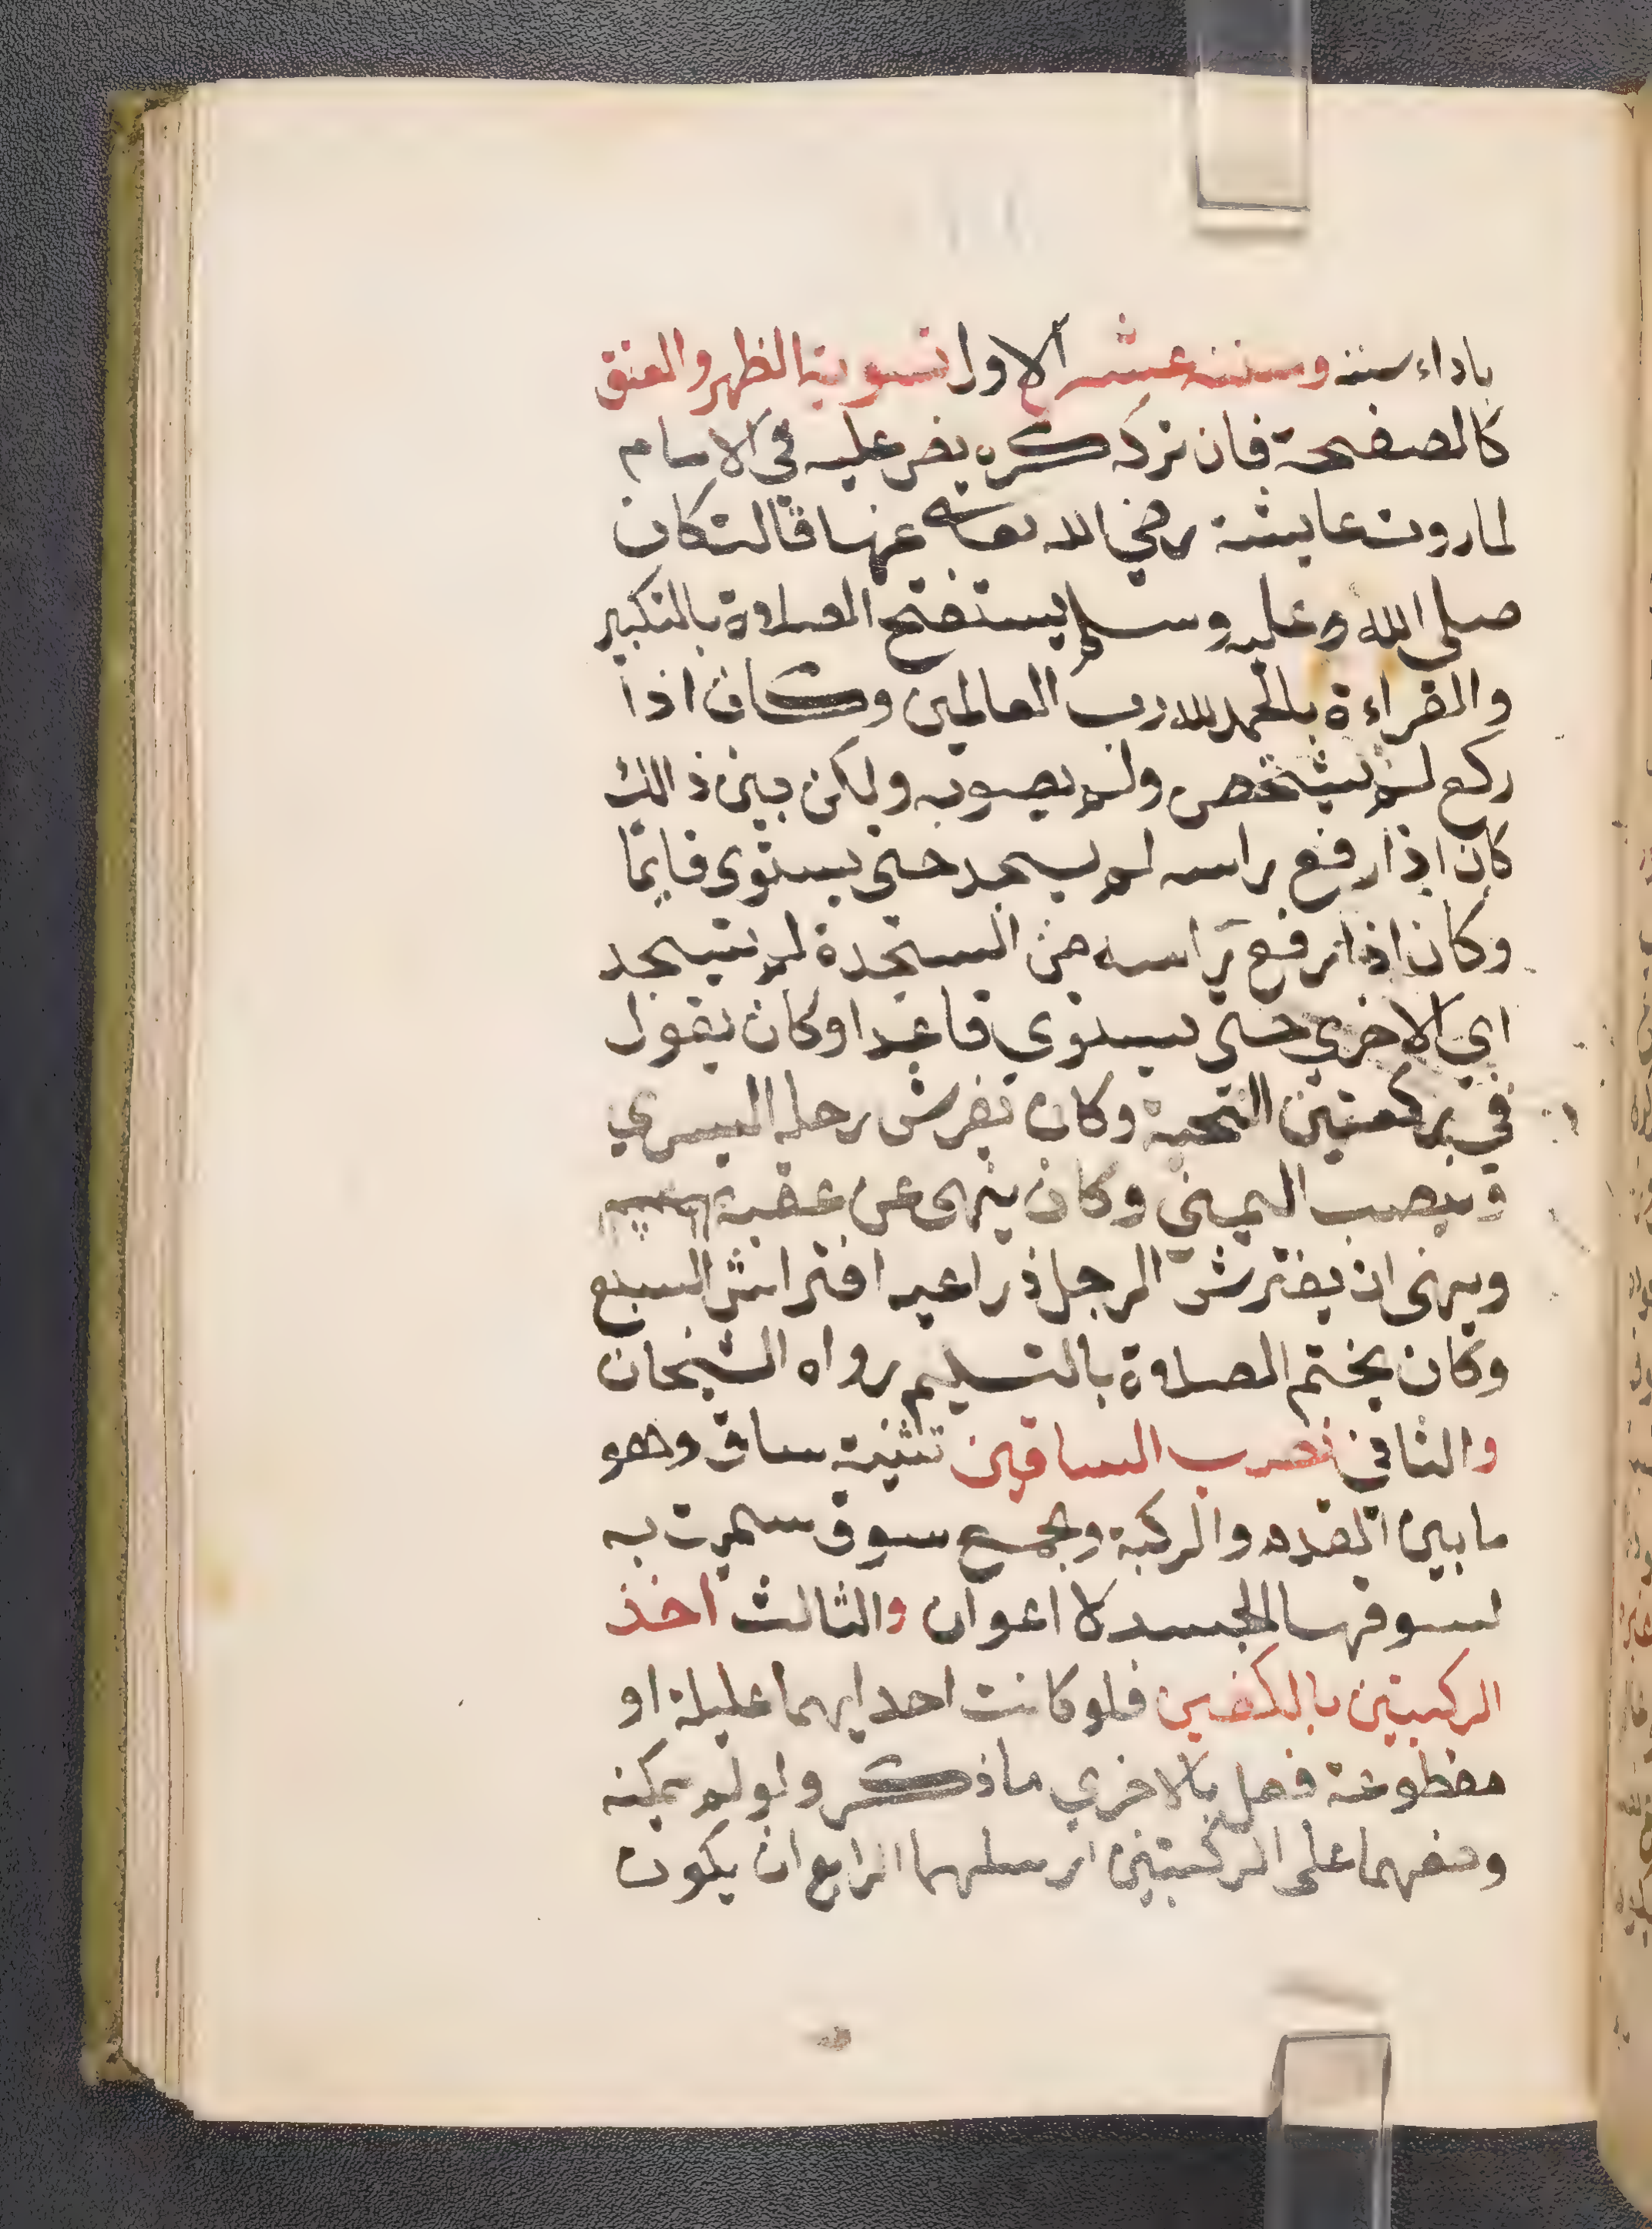 باداء سننه وسننه عشر الاول تسوية الظهر والعنق
كالصفيحة فان تركه كره نص عليه في الام
لما روت عايشة رضي الله تعالى عنها قالت كان
صلى الله وعليه وسلم يستفتح الصلاة بالتكبير
والقراءة بالحمد لله رب العالمين وكان اذا
ركع لم يشخص ولم يصوبه ولكن بين ذالك
كان اذا رفع راسه لم يسجد حتى يستوي قايما
وكان اذا رفع راسه من السجدة لم يسجد
اي الاخري حتى يستوي قاعدا وكان يقول
في ركعتين التحية وكان يفرش رجله اليسري
وينصب اليمنى وكان ينهى عن عقبة
وينهى ان يفترش الرجل ذراعيه افتراش السبع
وكان يختم الصلاة بالتسليم رواه الشيخان
والثاني نصب الساقين تثنية ساق وهو
ما بين القدم والركبة وجمع سوق سميت به
لسوقها الجسد لا اعوان والثالث اخذ
الركبتين بالكفين فلو كانت احدايهما عليلة او
مقطوعة فعل بالاخري ما ذكر ولو لم يمكنه
وضعهما على الركبتين ارسلهما الرابع ان يكون